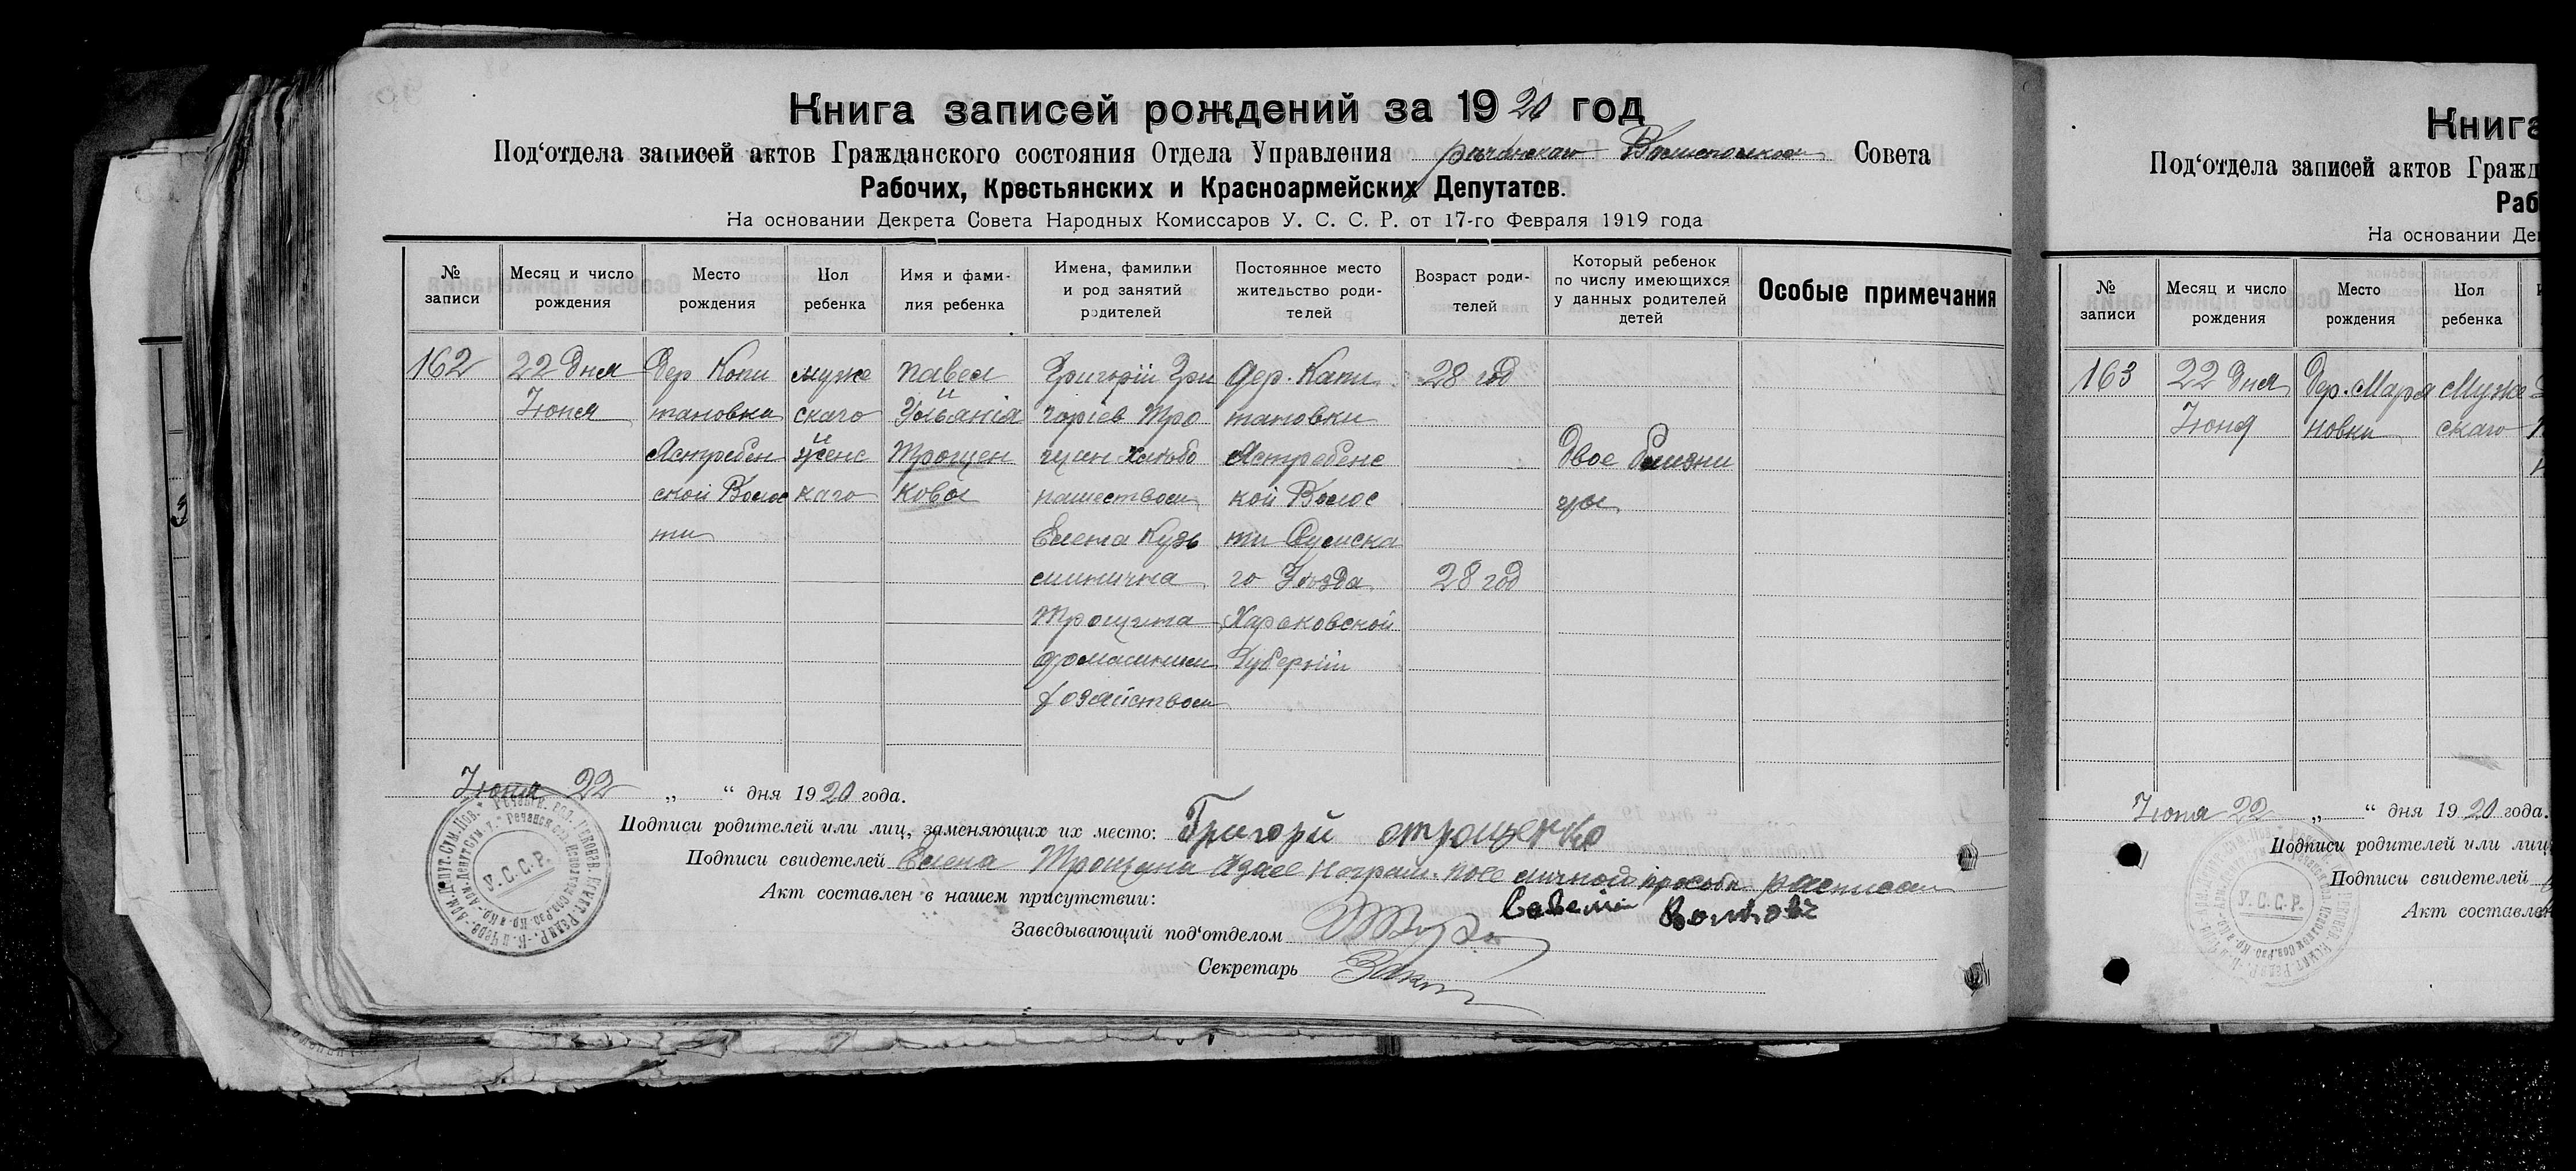 Книга записей рождений за 1920 год
Под‘отдела записей актов Гражданского состояния Отдела Управления Совета
Рабочих, Крестьянских и Красноармейских Депутатов.
На основании Декрета Совета Народных Комиссаров У. С. С. Р. от 17-го Февраля 1919 года
№ записи
Месяц и число рождения
Место рождения
Пол ребенка
Имя и фами-
лия ребенка
Имена, фамилии
и род занятий
родителей
Постоянное место
жительство роди-
телей
Возраст роди-
телей
Который ребенок
по числу имеющихся
у данных родителей
детей
Особые примечания
162
22 дня
Іюня
Дер Копи
тановка
Ястребен
ской Волос
ти
муже
скаго
й
женс
каго
Павел
и
Ульанія
Трощен
ковы
Григорій Гри
горіев Тро
щин хлебо
пашеством
Елена Кузь
минична
Трощина
домашним
хозяйством
Дер. Капи
тановки
Ястребенс
кой Волос
ти Сумска
го Уезда
Харьковской
Губерніи
28 год
28 год
Двое близни
цы
Іюня 22 „ “ дня 1920 года.
Подписи родителей или лиц, заменяющих их место: Григорй отрощенко
Подписи свидетелей Елена Трощина
Акт составлен в нашем присутствии:
Заведывающий под‘отделом
Секретарь
У.С.С.Р.
Книга
Под‘отдела записей актов Гражд
Раб
На основании Де
№ записи
Месяц и число рождения
Место рождения
Пол ребенка
163
22 дня
Іюня
Дер. Маря
новки
Муже
скаго
Іюня 22 „ “ дня 1920 года.
Подписи родителей или лиц
Подписи свидетелей
Акт составлен
У.С.С.Р.